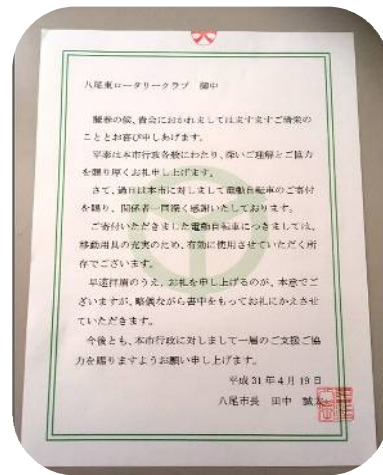 八尾東ロータリークラブ　御中
陽春の候、貴会におかれましてはますますご清栄の
こととお喜び申しあげます。
平素は本市行政各般にわたり、深いご理解とご協力
を賜り厚くお礼申し上げます。
さて、過日は本市に対しまして電動自転車のご寄付
を賜り、関係者一同深く感謝いたしております。
ご寄付いただきました電動自転車につきましては、
移動用具の充実のため、有効に使用させていただく所
存でございます。
早速拝眉のうえ、お礼を申し上げるのが、本意でご
ざいますが、略儀ながら書中をもってお礼にかえさせ
ていただきます。
今後とも、本市行政に対しまして一層のご支援ご協
力を賜りますようお願い申し上げます。
平成 31 年 4 月 19 日
八尾市長　田中　誠太